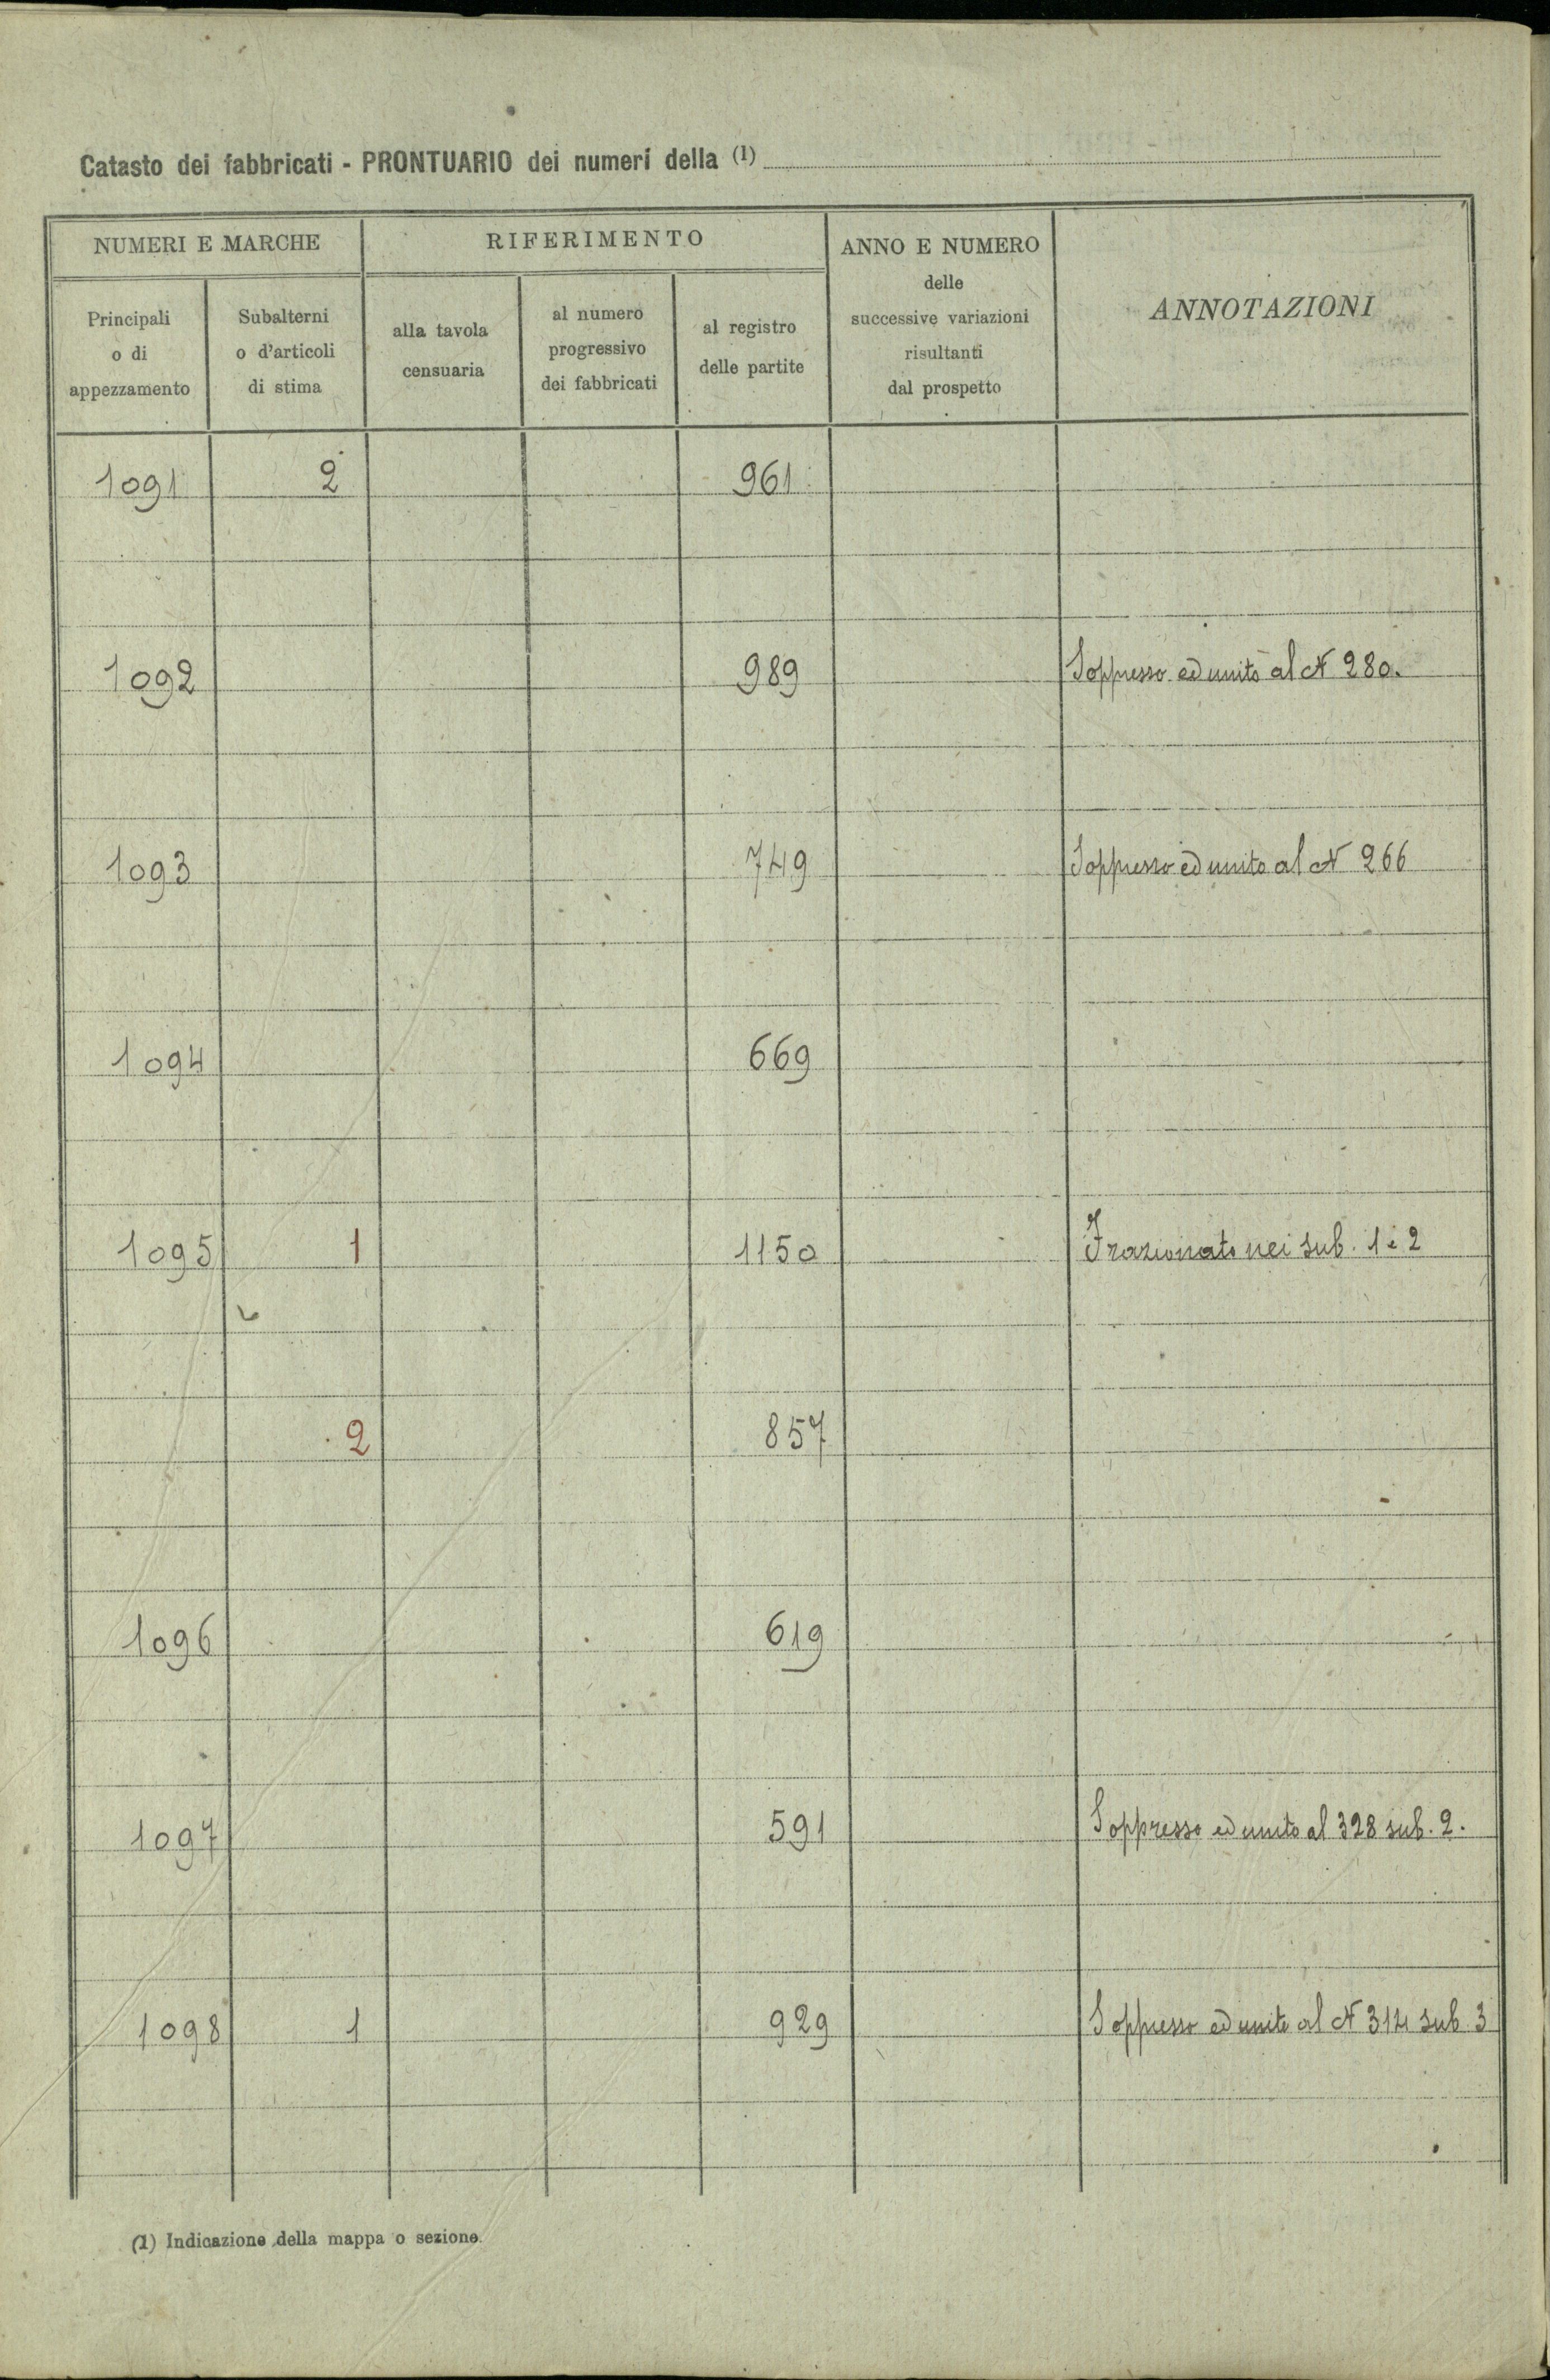 Catasto dei fabbricati - PRONTUARIO dei numeri della (1)
NUMERI E MARCHE
RIFERIMENTO
ANNO E NUMERO
delle
successive variazioni
risultanti
dal prospetto
ANNOTAZIONI
Principali
o di
appezzamento
Subalterni
o d'articoli
di stima
alla tavola
censuaria
al numero
progressivo
dei fabbricati
al registro
delle partite
1091 2 961
1092 989 Soppresso ed unito al N 280.
1093 749 Soppresso ed unito al N 266
1094 669
1095 1 1150 Frazionato nei sub. 1 e 2
2 857
1096 619
1097 591 Soppresso ed unito al 328 sub. 2.
1098 1 929 Soppresso ed unito al N 314 sub 3
(1) Indicazione della mappa o sezione.